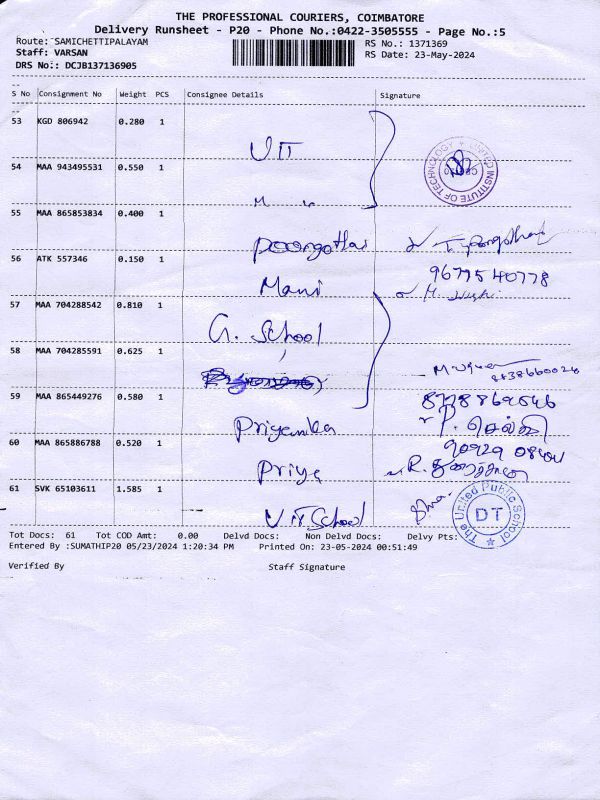 THE PROFESSIONAL COURIERS, COIMBATORE
Delivery Runsheet - P20 - Phone No.:0422-3505555 - Page No.:5
Route: SAMICHETTIPALAYAM
RS No.: 1371369
Staff: VARSAN
RS Date: 23-May-2024
DRS No.: DCJB137136905
S No Consignment No Weight PCS Consignee Details Signature
53 KGD 806942 0.280 1
UIT
54 MAA 943495531 0.550 1
UNITED INSTITUTE OF TECHNOLOGY
55 MAA 865853834 0.400 1
Poongothai
56 ATK 557346 0.150 1
9677540778
Mani
57 MAA 704288542 0.810 1
G. School
58 MAA 704285591 0.625 1
59 MAA 865449276 0.580 1
8778869546
Priyanka
P. செல்வி
60 MAA 865886788 0.520 1
Priya
61 SVK 65103611 1.585 1
UIT School
The United Public School
DT
Tot Docs: 61 Tot COD Amt: 0.00 Delvd Docs: Non Delvd Docs: Delvy Pts:
Entered By :SUMATHIP20 05/23/2024 1:20:34 PM Printed On: 23-05-2024 00:51:49
Verified By Staff Signature